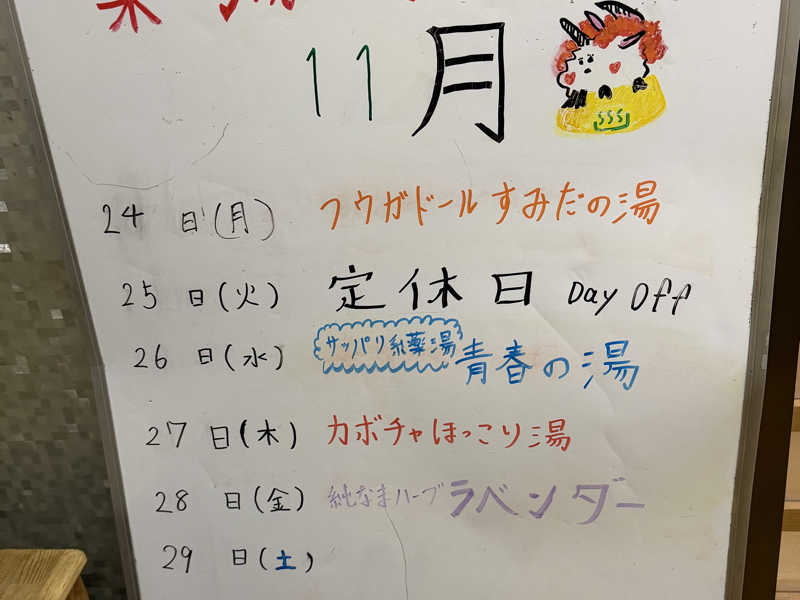 11月
24日(月) フウガドールすみだの湯
25日(火) 定休日 Day Off
26日(水) サッパリ系薬湯 青春の湯
27日(木) カボチャほっこり湯
28日(金) 純なまハーブ ラベンダー
29日(土)